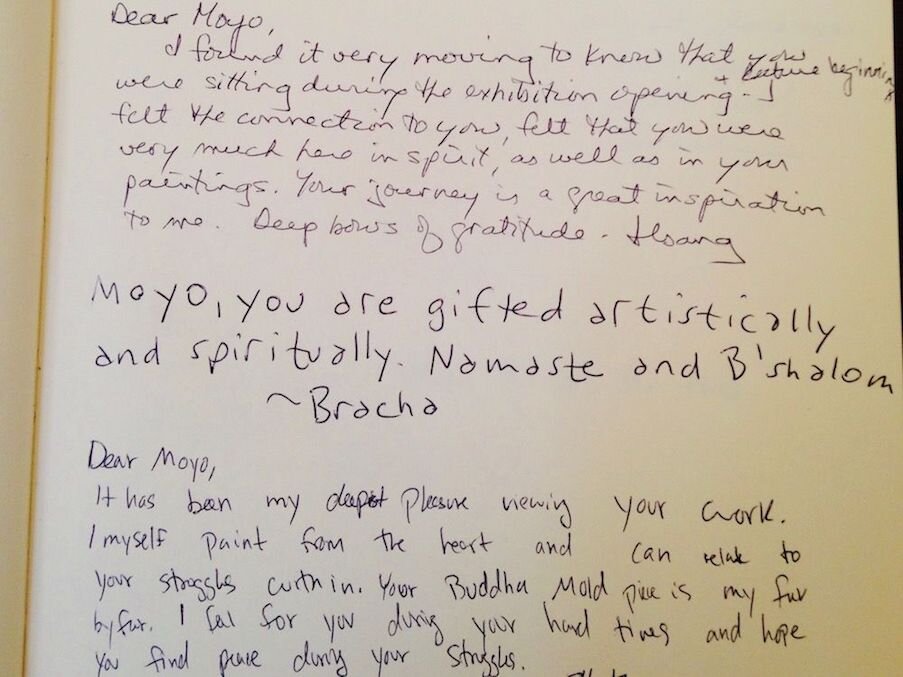 Dear Moyo,
I found it very moving to know that you
were sitting during the exhibition opening + lecture beginning. I
felt the connection to you, felt that you were
very much here in spirit, as well as in your
paintings. Your journey is a great inspiration
to me. Deep bows of gratitude -
Moyo, you are gifted artistically
and spiritually. Namaste and B'shalom
~Bracha
Dear Moyo,
It has been my deepest pleasure viewing your work.
I myself paint from the heart and can relate to
your struggles within. Your Buddha Mold piece is my fav
by far. I feel for you during your hard times and hope
you find peace during your struggles.